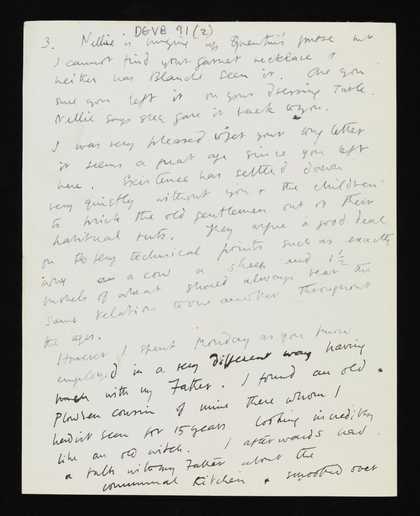 DGVB 91 (2)
3. Nellie is bringing up Quentin's purse but
I cannot find your garnet necklace &
neither has Blanche seen it. Are you
sure you left it on your dressing table.
Nellie says she gave it back to you.
I was very pleased to get your long letter
it seems a great age since you left
here. Existence has settled down
very quietly without you & the children
to prick the old gentlemen out of their
habitual ruts. They argue a good deal
on very technical points such as exactly
why a cow a sheep and 1½
bushels of wheat should always bear the
same relation to one another throughout
the ages.
However I spent Monday as you know
employed in a very different way having
lunch with my Father. I found an old
Plowden cousin of mine there whom I
hadn't seen for 15 years looking incredibly
like an old witch. I afterwards had
a talk with my Father about the
communal kitchen & smoothed over